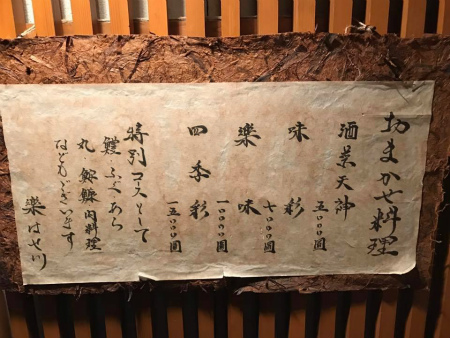 おまかせ料理
酒菜天神 五〇〇〇圓
味彩 七〇〇〇圓
楽味 一〇〇〇〇圓
四季彩 一五〇〇〇圓
特別コースとして
鱧 ふぐ あら
丸 鮟鱇 肉料理
などもございます
楽はせ川